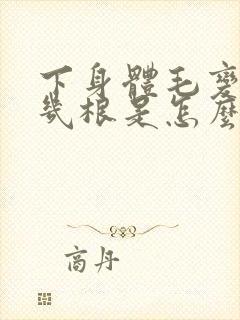 下身體毛變
幾根是怎麼
商丹